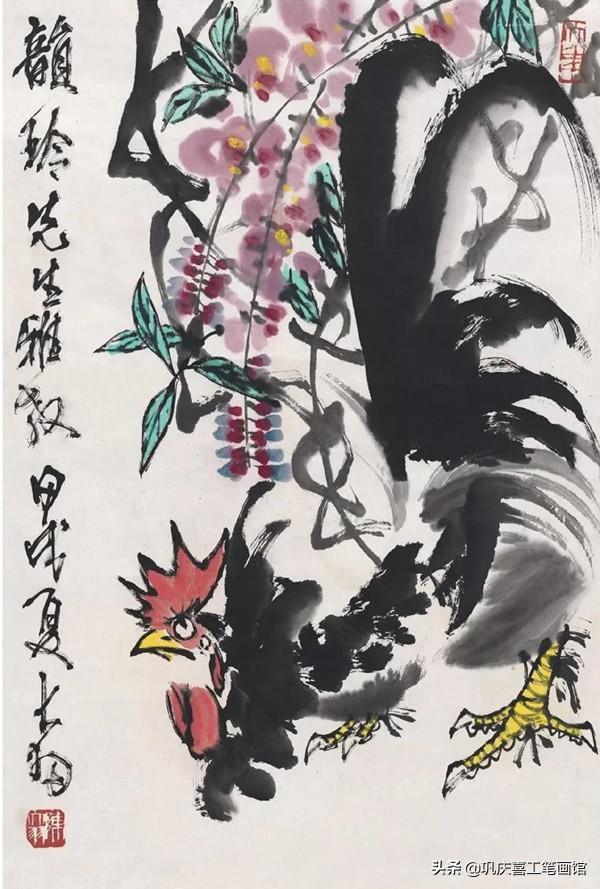 韻玲先生雅教 甲戌夏 大羽
头条 @巩庆喜工笔画馆